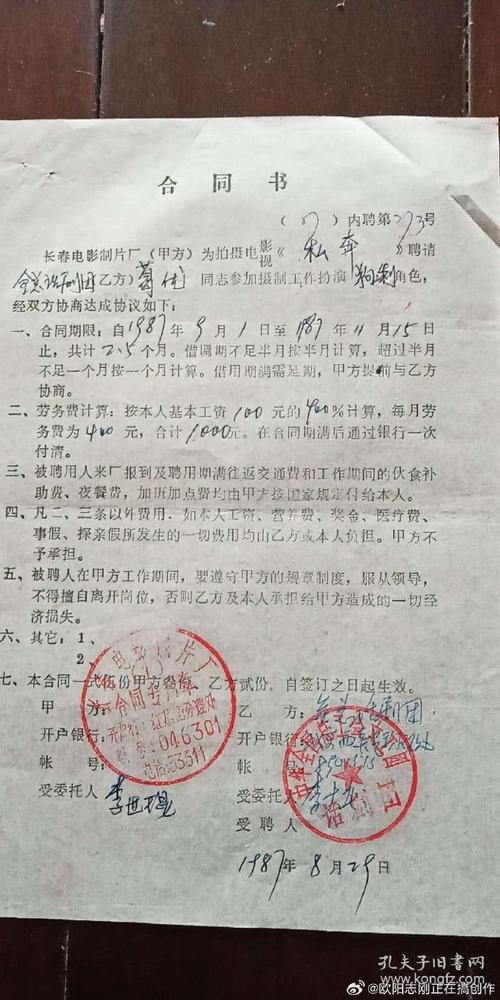 合同书
(87)内聘第273号
长春电影制片厂(甲方)为拍摄电影视《私奔》聘请
全总话剧团乙方)葛优同志参加摄制工作扮演角色,
经双方协商达成协议如下:
一、合同期限:自1987年9月1日至1987年11月15日
止,共计2.5个月。借调期不足半月按半月计算,超过半月
不足一个月按一个月计算。借用期满需延期,甲方提前与乙方
协商。
二、劳务费计算:按本人基本工资100元的400%计算,每月劳
务费为400元,合计1000元。在合同期满后通过银行一次
付清。
三、被聘用人来厂报到及聘用期满往返交通费和工作期间的伙食补
助费、夜餐费,加班加点费均由甲方按国家规定付给本人。
四、凡二、三条以外费用,如本人工资、营养费、奖金、医疗费、
事假、探亲假所发生的一切费用均由乙方或本人负担。甲方不
予承担。
五、被聘人在甲方工作期间,要遵守甲方的规章制度,服从领导,
不得擅自离开岗位,否则乙方及本人承担给甲方造成的一切经
济损失。
六、其它:1、
2、
七、本合同一式伍份甲方叁份,乙方贰份,自签订之日起生效。
甲方:
乙方:全总话剧团
开户银行:
开户银行:
帐号:
帐号:
受委托人
受委托人
受聘人
1987年8月29日
电影制片厂
合同专用章
046301
电话:53311
话剧团
孔夫子旧书网
www.kongfz.com
@欧阳志刚正在搞创作